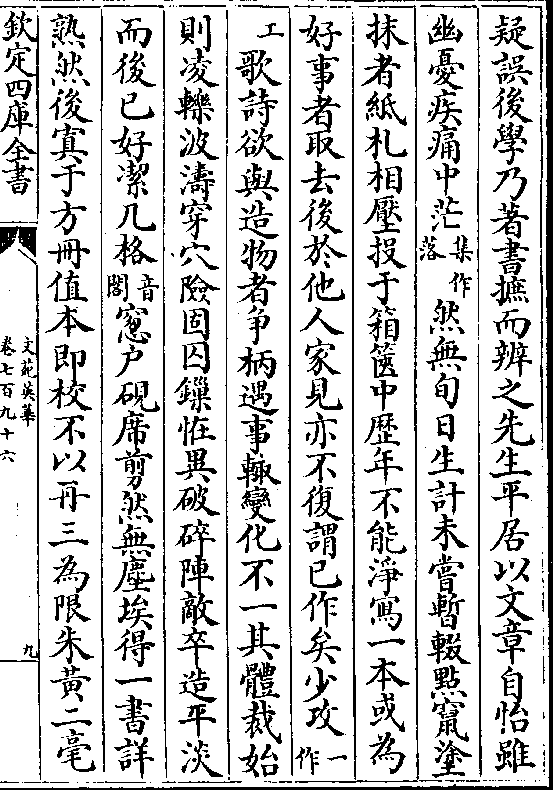 疑誤後學乃著書摭而辨之先生平居以文章自怡雖
幽憂疾痛中茫集作落然無旬日生計未嘗暫輟點竄塗
抹者紙札相壓投于箱篋中歴年不能淨寫一本或為
好事者取去後於他人家見亦不復謂已作矣少攻一作
工歌詩欲與造物者争柄遇事輒變化不一其體裁始
則凌轢波濤穿穴險固囚鏁怪異破碎陣敵卒造平淡
而後已好潔几格音閣窓户硯席剪然無塵埃得一書詳
熟然後寘于方冊值本即校不以再三為限朱黄二毫
欽定四庫全書
文苑英華
卷七百九十六
九